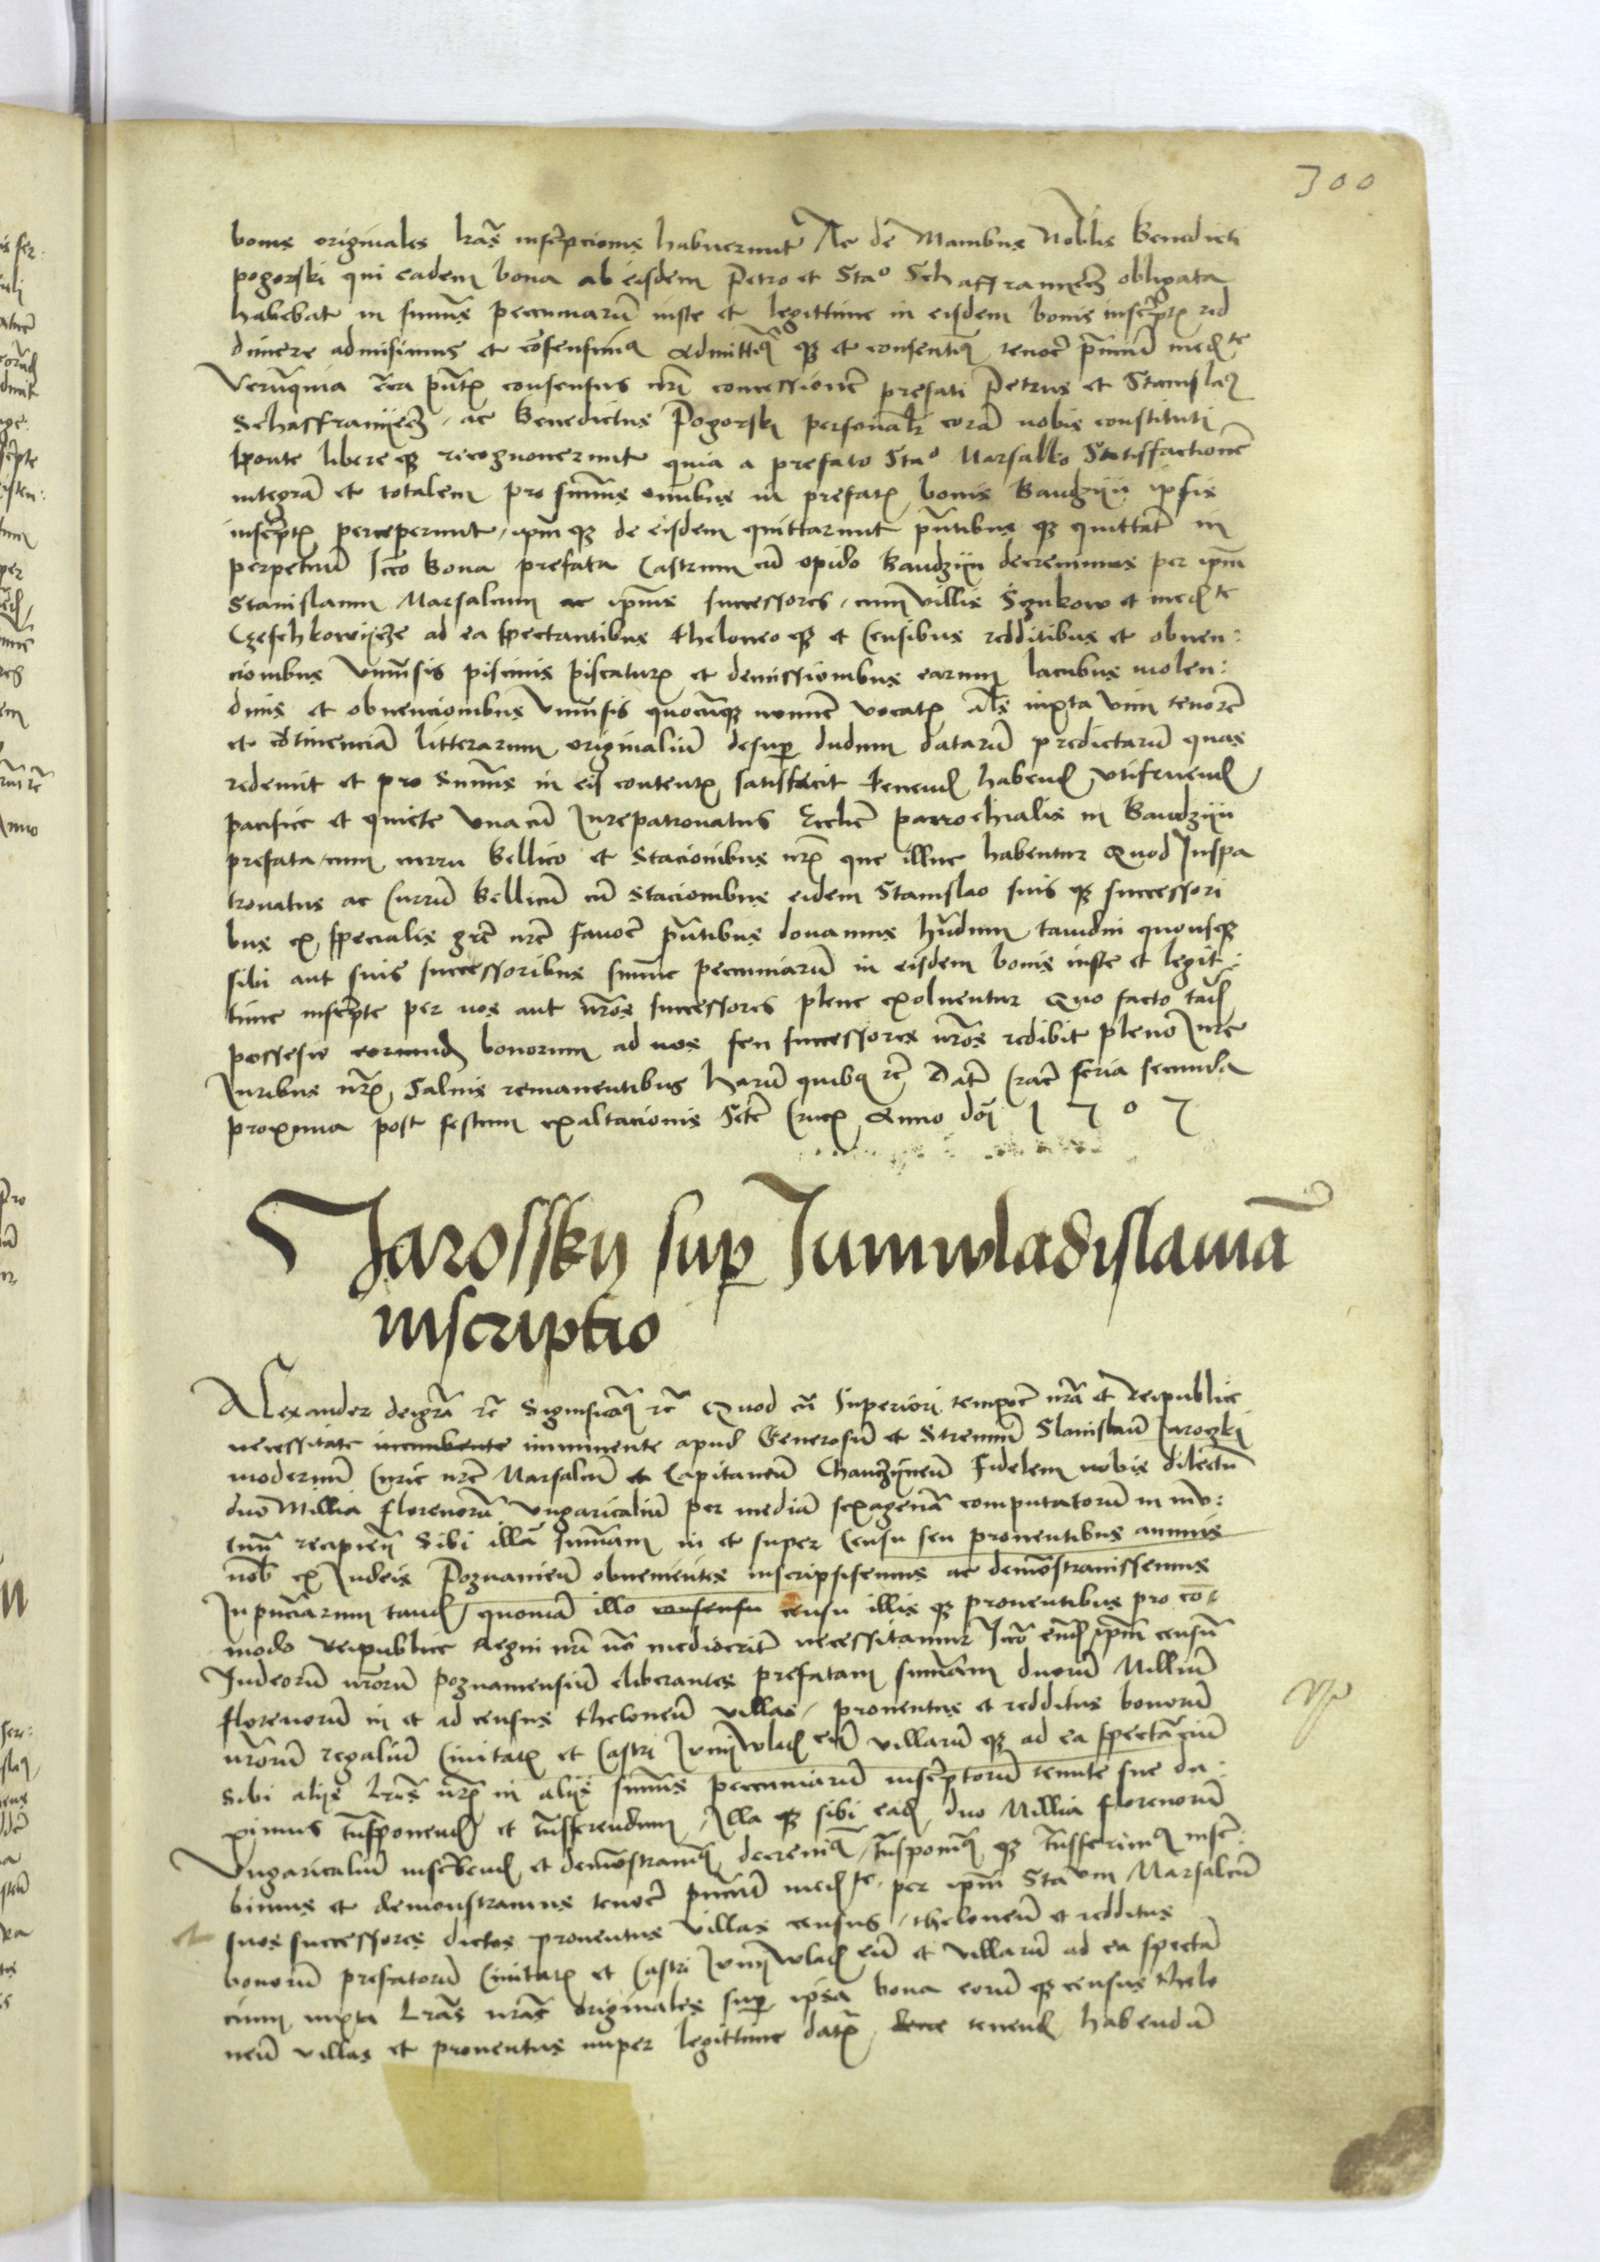 300
bonis originales lras inscripcionis habuerunt Ac de Manibus Noblis Benedicti
pogorski qui eadem bona ab eisdem Petro et Stao Schaffranyecz obligata
habebat in summis pecuniarum iuste et legittime in eisdem bonis inscriptis red
dimere admisimus et consensimus Admittimus que et consentimus tenore pncium medte
Verumquia circa pntis consensus nri concessionem prefati Petrus et Stanislaus
Schaffranyecz, ac Benedictus Pogorski personalr coram nobis constituti
sponte libere que recognouerunt quia a prefato Stao Marsalko Satisfactionem
integram et totalem pro summis omnibus in prefatis bonis Bandzyn ipsis
inscriptis perceperunt, ipm que de eisdem quittarunt pntibus que quittant in
perpetuum Icco Bona prefata Castrum cum opido Bandzyn decreuimus per ipm
Stanislaum Marsalcum ac ipius successores, cum villis Sgukow et medte
Czeschkowycze ad ea spectantibus theloneo que et Censibus redditibus et obuen:
cionibus Vniuersis piscinis piscaturis et demissionibus earum lacubus molen:
dinis et obuencionibus Vniuersis quocumque nomine vocatis als iuxta vim tenorem
et continenciam litterarum originalium desuper dudum datarum predictarum quas
redemit et pro Summis in eis contentis satisfecit tenend habend vtifruend
pacifice et quiete Vnacum Iurepatronatus Ecclie parrochialis in Bandzyn
prefata, cum curru bellico et Stacionibus nris que illuc habentur Quod Iuspa
tronatus ac Currum bellicum cum Stacionibus eidem Stanislao suis que successori
bus ex specialis gre nre fauore pntibus donamus hndum tamdiu quousque
sibi aut suis successoribus summe pecuniarum in eisdem bonis iuste et legit:
time inscripte per nos aut nros successores plene exoluentur Quo facto tand
possesio eorumd bonorum ad nos seu successores nros redibit pleno Iure
Iuribus nris Saluis remanentibus harum quibus rc Dat Crac feria secunda
proxima post festum exaltacionis Scte Crucis Anno doi 1 5 0 5
Jarossky sup Juniwladislauiam
inscriptio
Alexander deigra rc Significamus rc Quod cum Superiori tempore nra et Reipublice
necessitate incumbente imminente apud Generosum et Strenuum Stanislaum Jarozki
modernum Curie nre Marsalcum et Capitaneum Chanczynen Fidelem nobis dilectum
duo Millia florenorum Vngaricalium per mediam sexagenam computatorum in mu:
tuum recipien Sibi illam Summam in et super Censu seu prouentibus annuis
nob ex Iudeis Poznanien obuenientes inscripsisemus ac demonstrauissemus
Inpnciarum tand, quoniam illo consensu censu illis que prouentibus pro co
modo Reipublice Regni nri no mediocriter necessitamur Icco eund ipm censum
Iudeorum nrorum poznaniensium eliberantes prefatam summam duorum Millium
florenorum in et ad census theloneum villas, prouentus et redditus bonorum
nrorum regalium Ciuitatis et Castri Iunywlad en villarum que ad ea spectancium
Sibi alijs lris nris in alijs summis pecuniarum inscriptorum tenute sue du:
ximus transponend et transferendum, Illa que sibi ead duo Millia florenorum
Vngaricalium inscribend et demonstrand decreuimus, transponimus que transferimus inscri:
bimus et demonstramus tenore pncium medte, per ipm Staum Marsalcum
et suos successores dictos prouentus villas census, theloneum et redditus
bonorum prefatorum Ciuitatis et Castri Iunywlad en et villarum ad ea spectan
cium iuxta Lras nras originales sup ipsa bona eorum que census thelo
neum villas et prouentus nuper legittime datis, tenend habendum